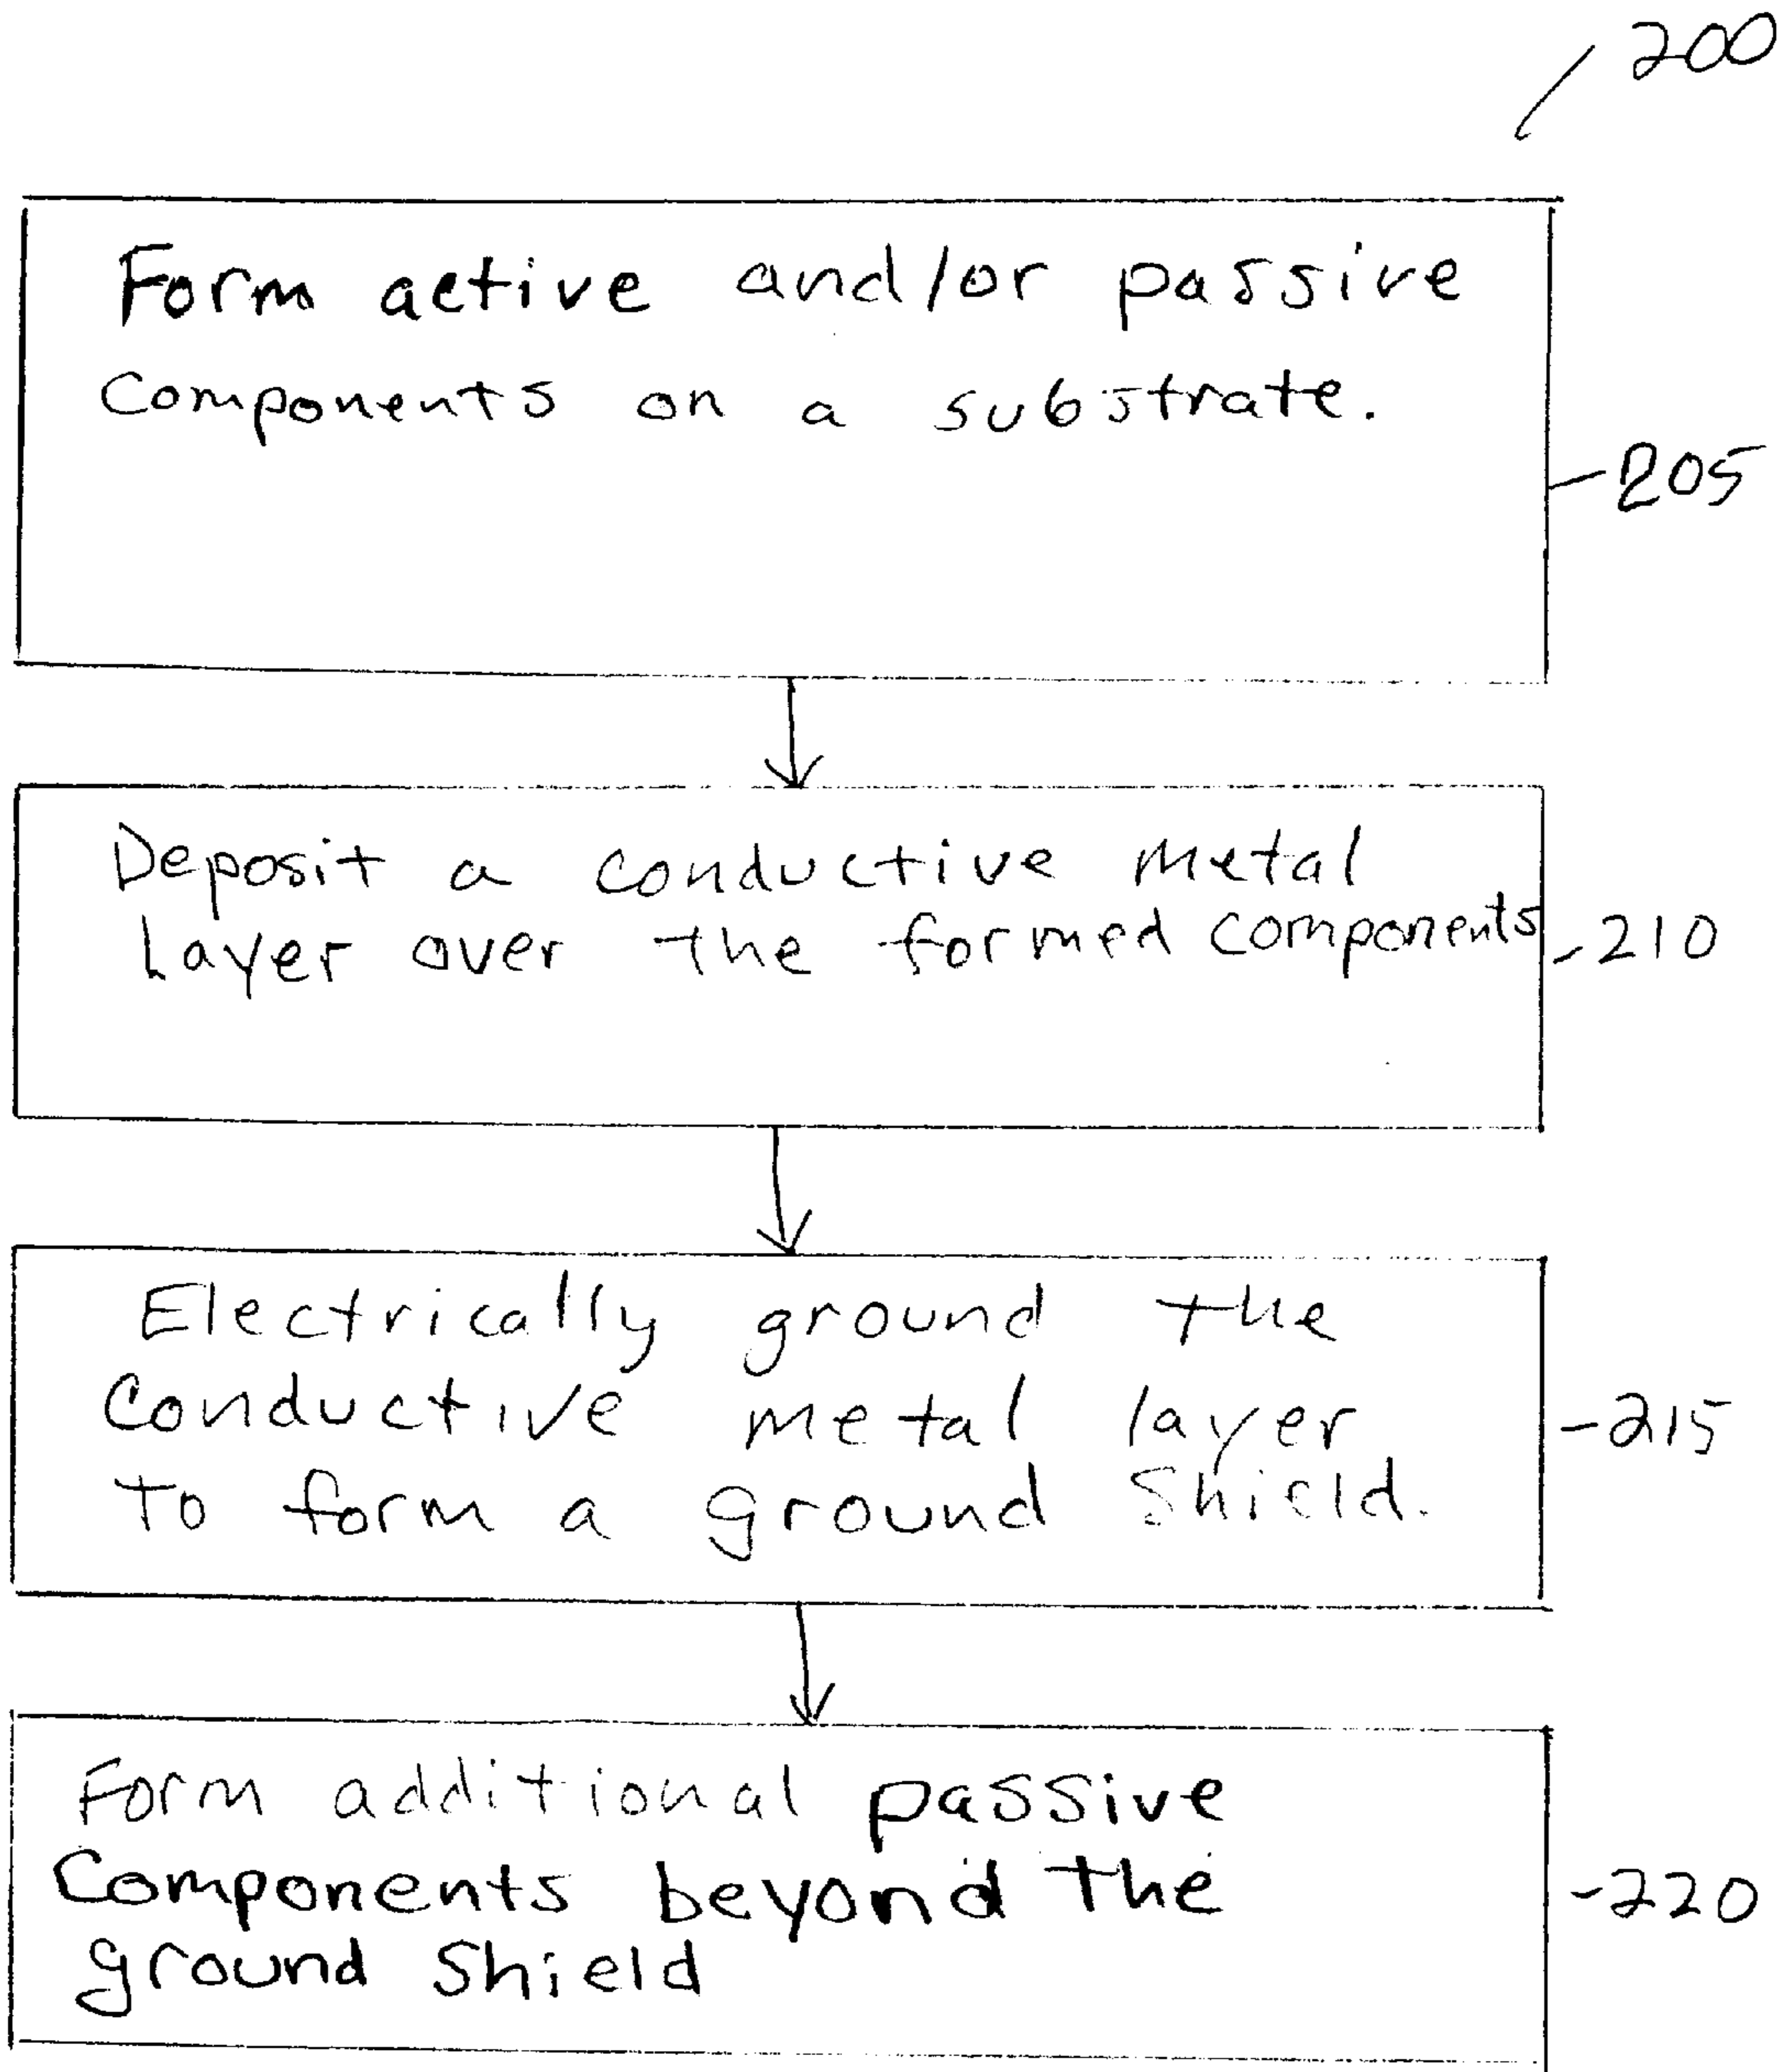 200
Form active and/or passive
Components on a substrate.
205
Deposit a conductive metal
Layer over the formed components
210
Electrically ground the
Conductive metal layer
To form a ground Shield.
215
Form additional passive
Components beyond the
ground Shield
220